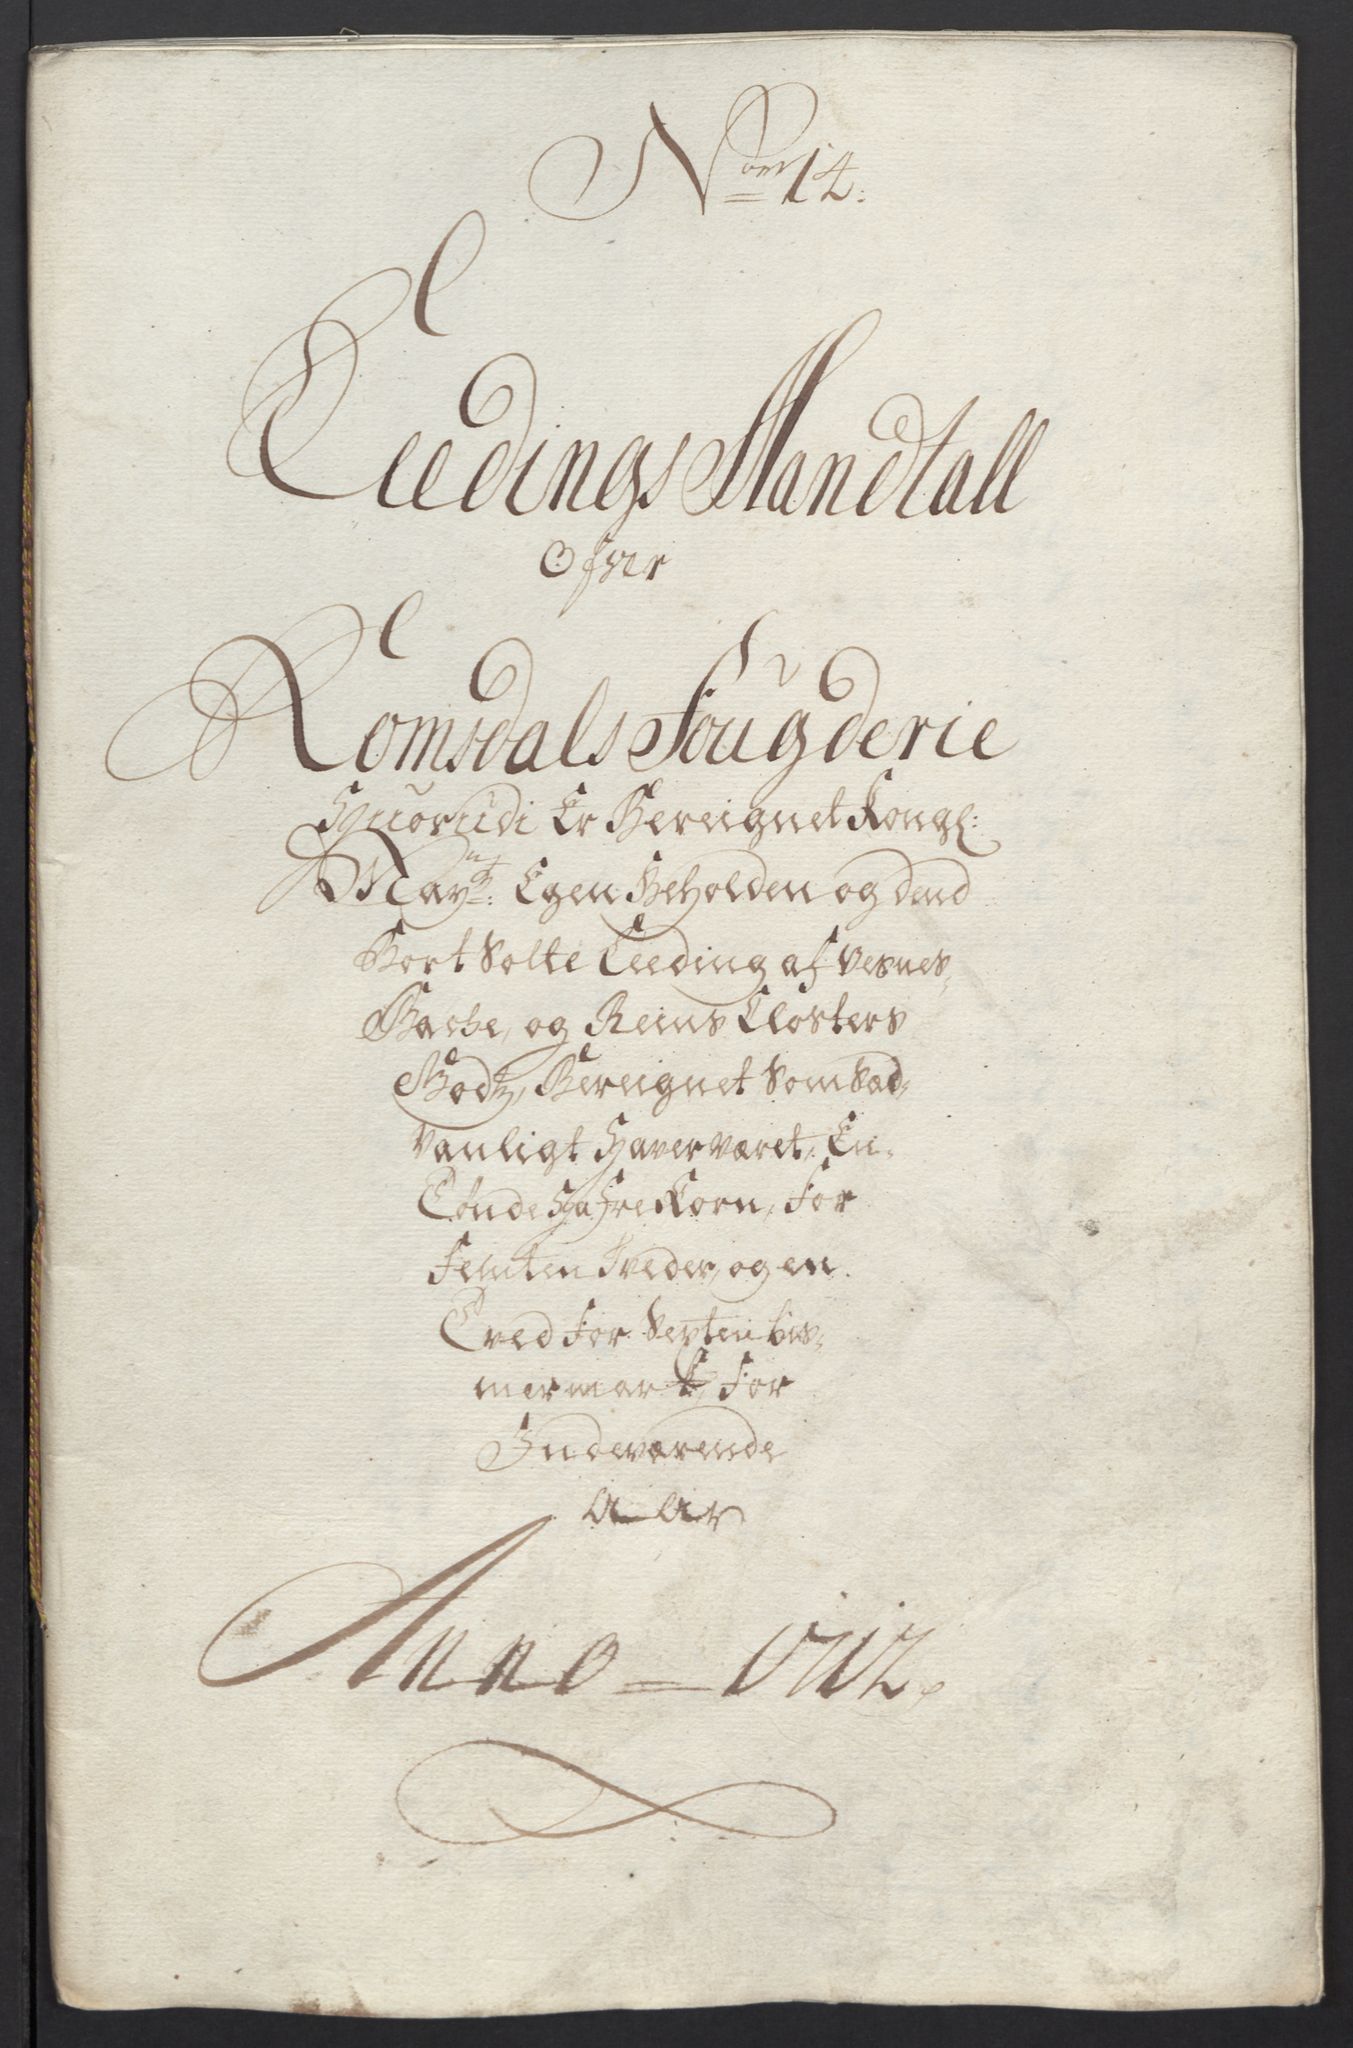 N<sup>o</sup> 14.
Leedings Mandtall
Ofver
Romsdals Fougderie
Hvorudi Er Bereignet Kongl:
May<sup>tz</sup>: Egen Beholden og dend
Bort Solte Leeding af Vesnes,
Bache, og Reins Closters
Godtz, Bereignet Som Sæd,
vanligt Haver været, En
Tønde Hafre Korn, for
Femten Weder, og en
Wed for Sexten bis,
mermark, for
Indeværende
Aar
Anno 1712.